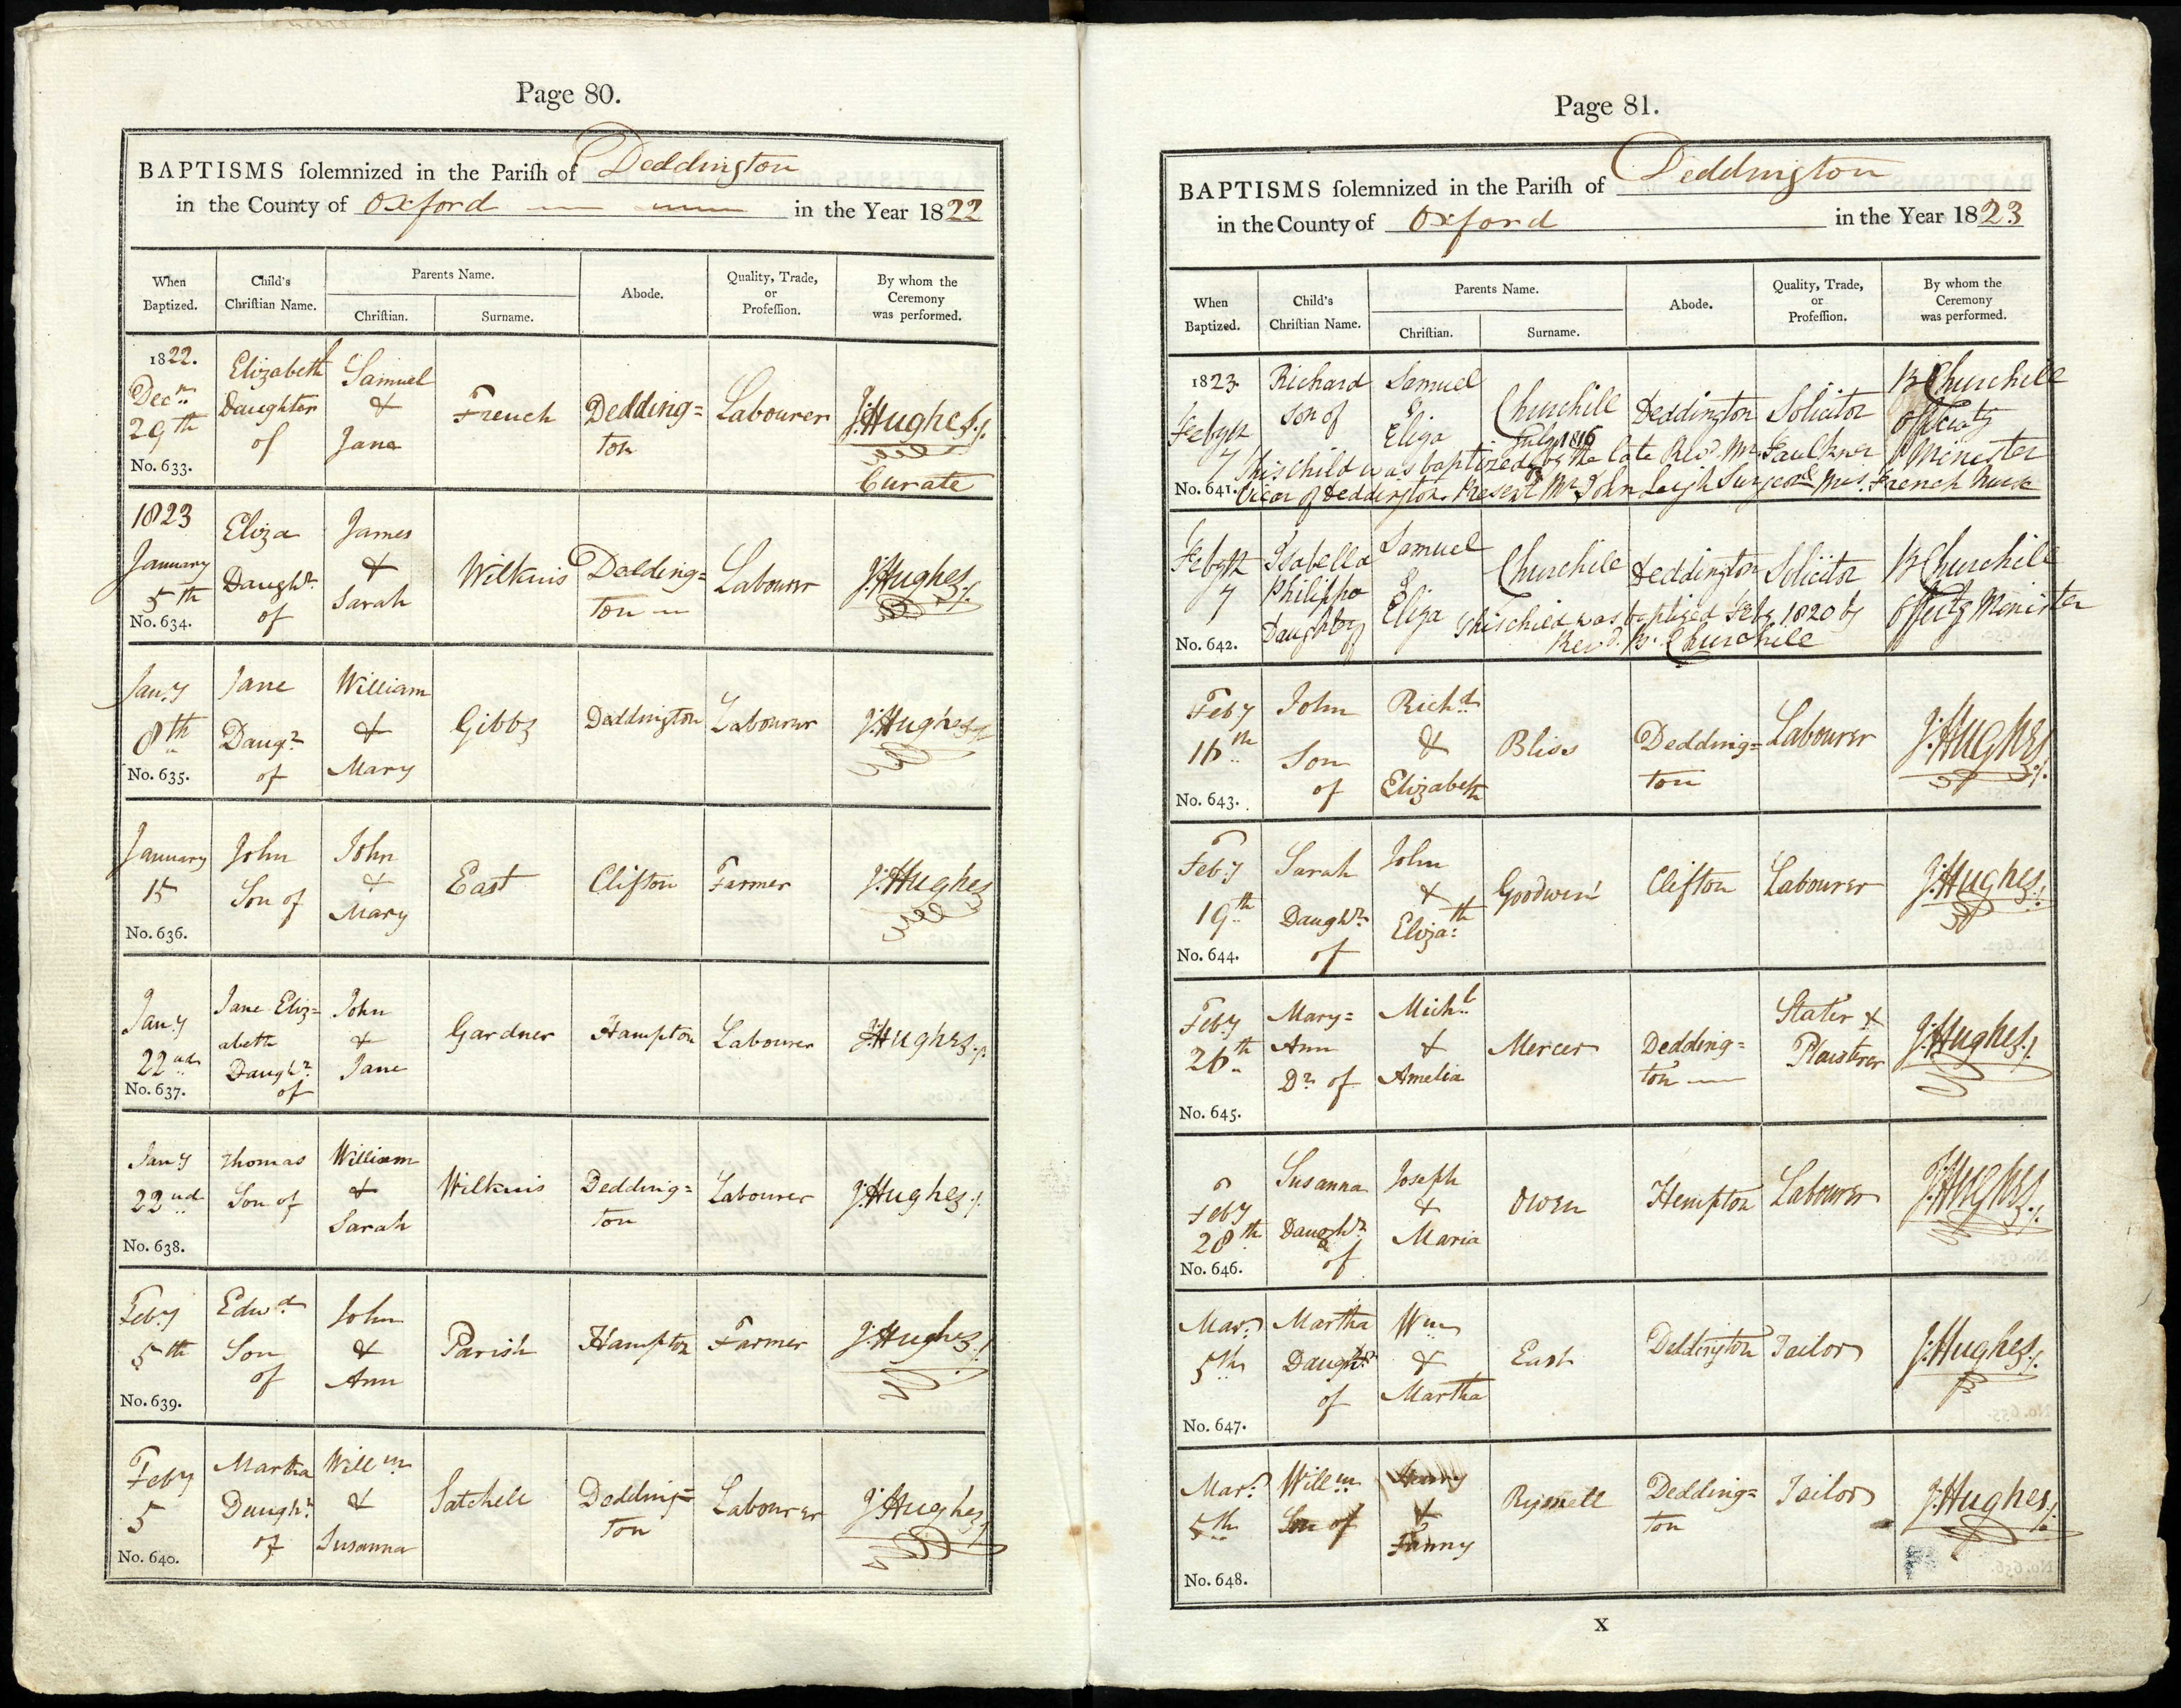 Page 80.
BAPTISMS solemnized in the Parish of Deddington
in the County of Oxford in the Year 1822
When Baptized.
Child's Christian Name.
Parents Name.
Christian.
Surname.
Abode.
Quality, Trade, or Profession.
By whom the Ceremony was performed.
1822.
Decr.
29th
No. 633.
Elizabeth
Daughter
of
Samuel
&
Jane
French
Dedding=
ton
Labourer
J. Hughes
Curate
1823
January
5th
No. 634.
Eliza
Daughr.
of
James
&
Sarah
Wilkins
Dedding=
ton
Labourer
J. Hughes
Jany
8th
No. 635.
Jane
Daugr.
of
William
&
Mary
Gibbs
Deddington
Labourer
J. Hughes
January
15
No. 636.
John
Son of
John
&
Mary
East
Clifton
Farmer
J. Hughes
Jany
22nd
No. 637.
Jane Eliz=
abeth
Daughr.
of
John
&
Jane
Gardner
Hampton
Labourer
J. Hughes
Jany
22nd
No. 638.
Thomas
Son of
William
&
Sarah
Wilkins
Dedding=
ton
Labourer
J. Hughes
Feby
5th
No. 639.
Edwd.
Son
of
John
&
Ann
Parish
Hampton
Farmer
J. Hughes
Feby
5
No. 640.
Martha
Daughr.
of
Willm
&
Susanna
Satchell
Dedding=
ton
Labourer
J. Hughes
Page 81.
BAPTISMS solemnized in the Parish of Deddington
in the County of Oxford in the Year 1823
When Baptized.
Child's Christian Name.
Parents Name.
Christian.
Surname.
Abode.
Quality, Trade, or Profession.
By whom the Ceremony was performed.
1823.
7
No. 641.
Richard
Son of
Samuel
&
Eliza
Churchill
Deddington
Solicitor
B Churchill
Officiatg
Minister
July 1816
This child was baptized by the late Revd. Mr. Faulkner
Vicar of Deddington. Present Mr. John Leigh Surgeon & Mrs. French Nurse
7
No. 642.
Isabella
Philippa
Daughter of
Samuel
&
Eliza
Churchill
Deddington
Solicitor
B Churchill
Minister
This child was baptized Feby 1820 by
Revd. B. Churchill
Feby
16th
No. 643.
John
Son
of
Richd.
&
Elizabeth
Bliss
Dedding=
ton
Labourer
J. Hughes
Feby
19th
No. 644.
Sarah
Daughr.
of
John
&
Elizath:
Goodwin
Clifton
Labourer
J. Hughes
Feby
26th
No. 645.
Mary=
Ann
Dr. of
Michl.
&
Amelia
Mercer
Dedding=
ton
Slater &
Plaisterer
J. Hughes
Feby
28th
No. 646.
Susanna
Daughr.
of
Joseph
&
Maria
Owen
Hempton
Labourer
J. Hughes
Mar.
5th
No. 647.
Martha
Daughr.
of
Wm
&
Martha
East
Deddington
Tailor
J. Hughes
Mar.
5th
No. 648.
Willm
Son of
Henry
&
Fanny
Dedding=
ton
Tailor
J. Hughes
X